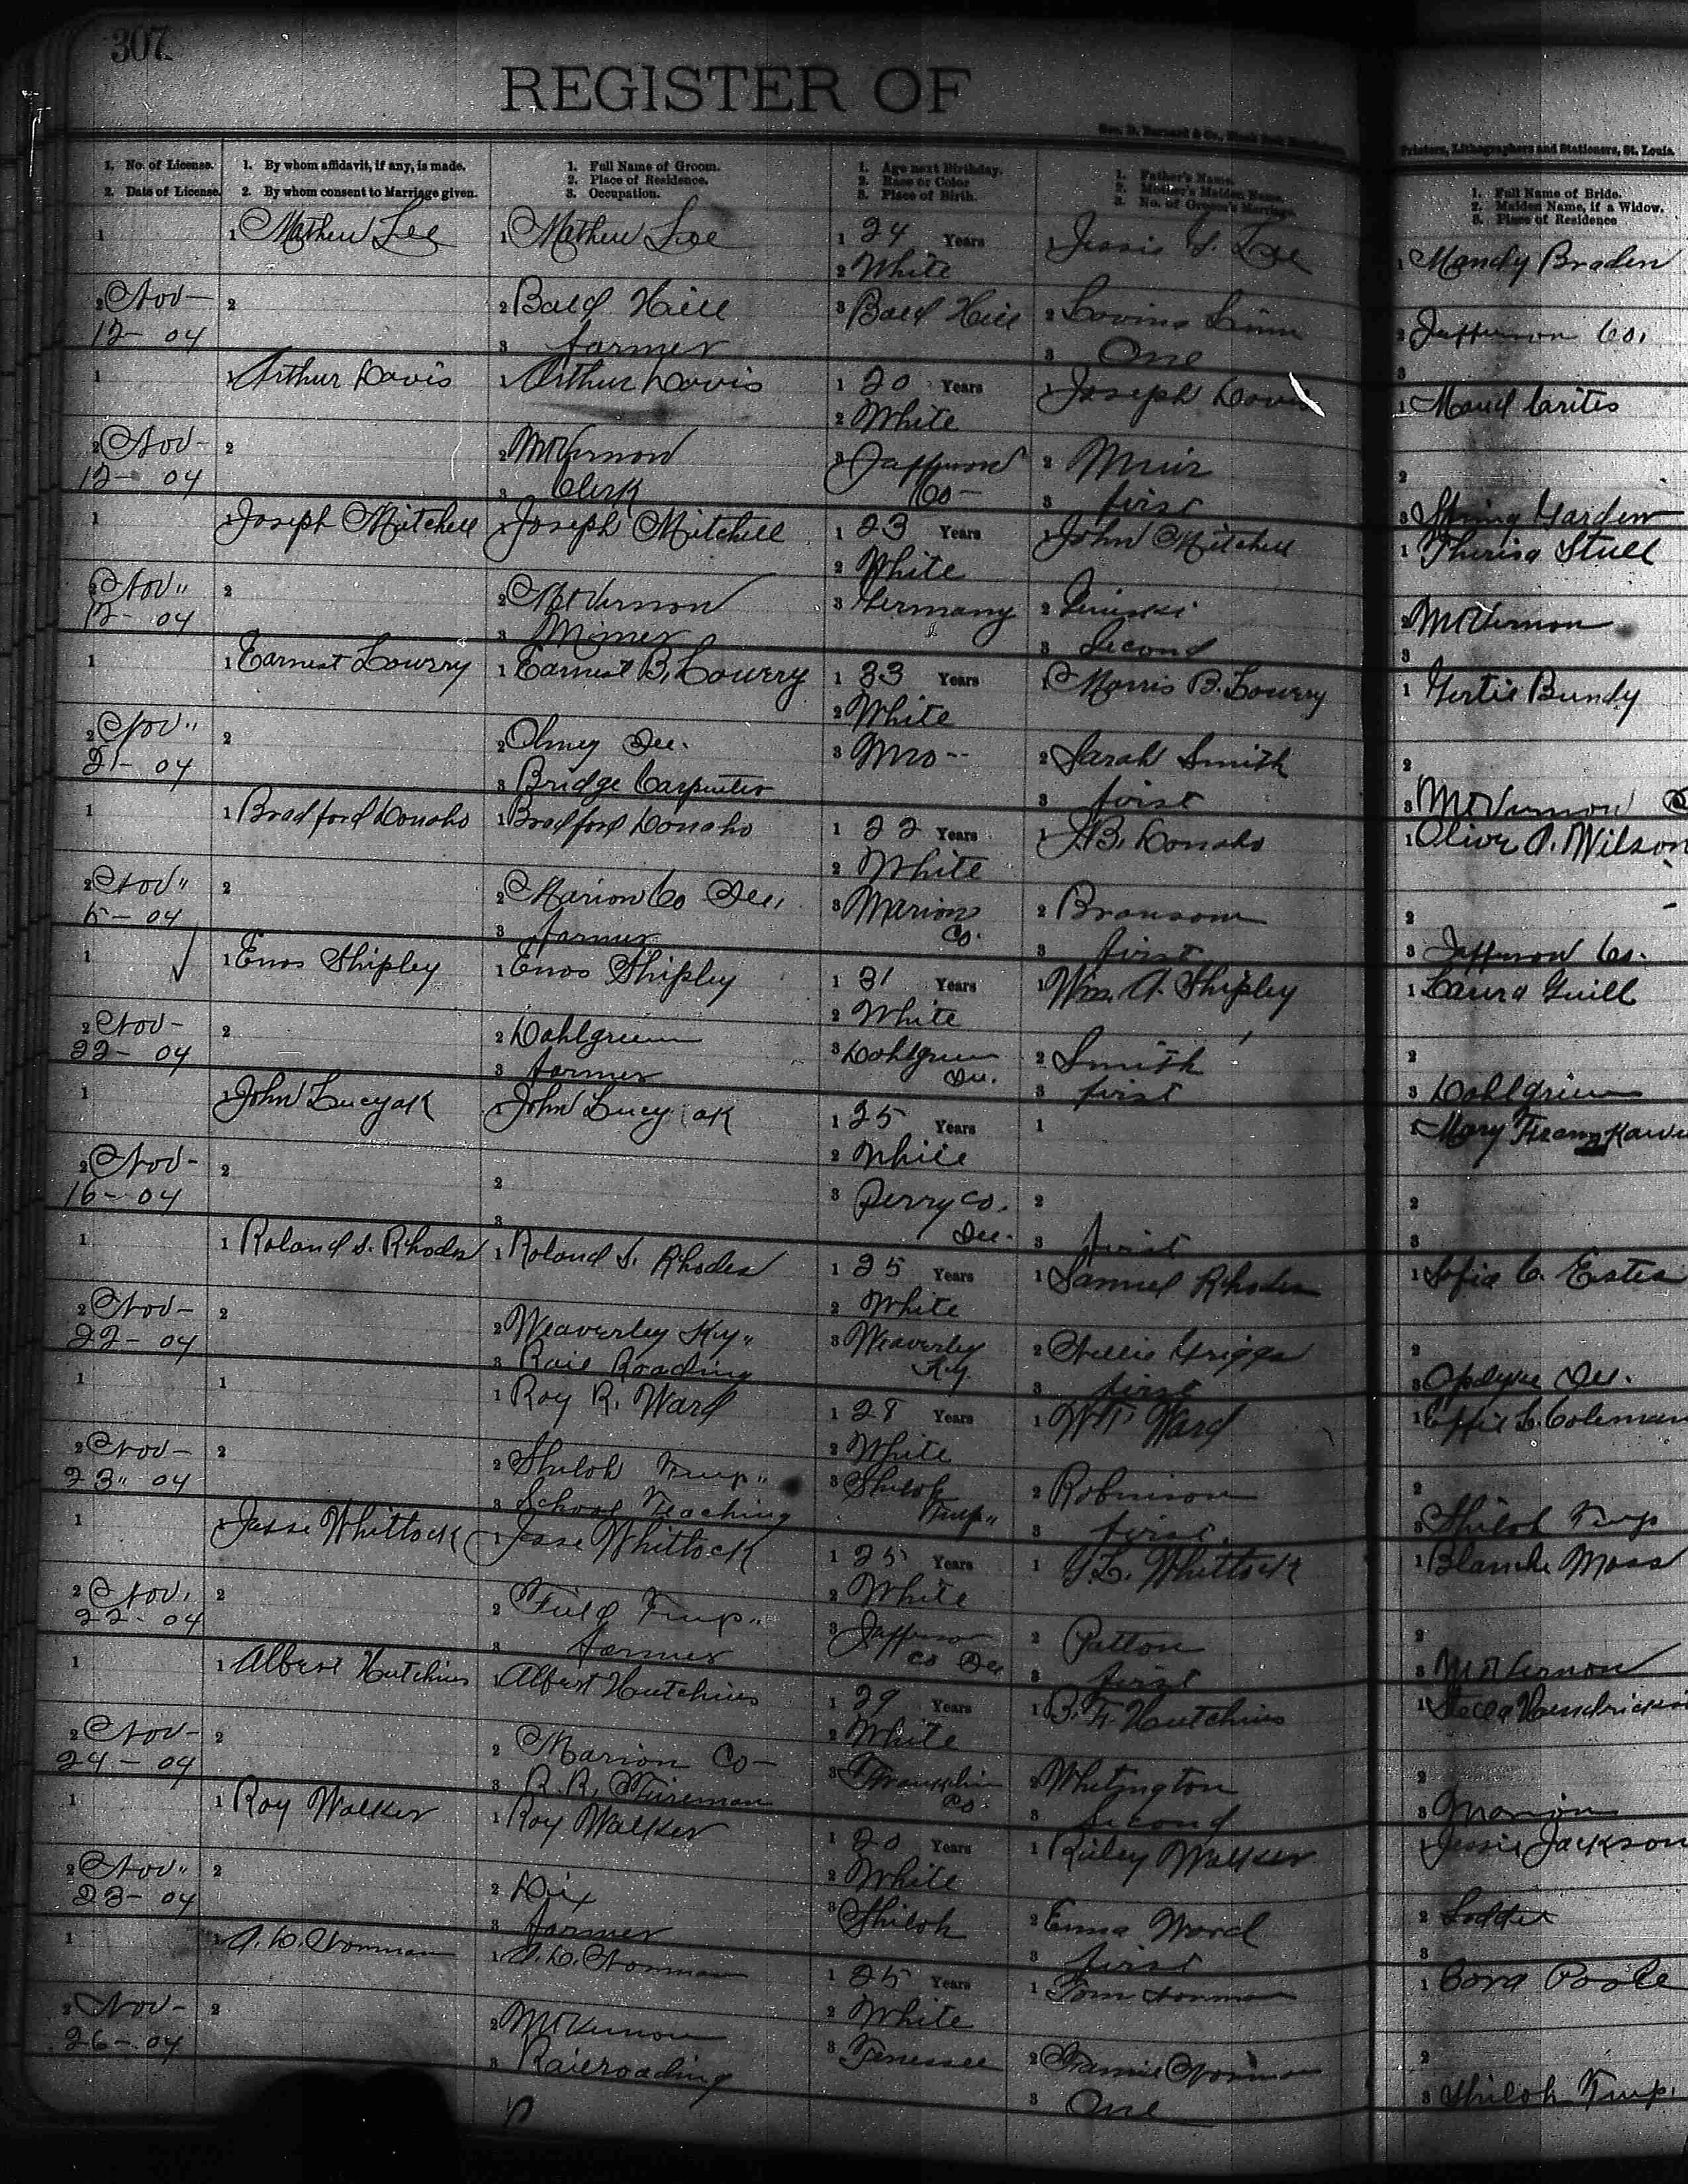 307.
REGISTER OF
Geo. D. Barnard & Co., Blank Book
Printers, Lithographers and Stationers, St. Louis.
1. No. of License. 1. By whom affidavit, if any, is made. 1. Full Name of Groom. 1. Age next Birthday. 1. Father's Name. 1. Full Name of Bride.
2. Date of License. 2. By whom consent to Marriage given. 2. Place of Residence. 2. Race or Color 2. Mother's Maiden Name. 2. Maiden Name, if a Widow.
3. Occupation. 3. Place of Birth. 3. No. of Groom's Marriage. 3. Place of Residence
1 1 Mathew Lee 1 Mathew Lee 1 24 Years 1 Jessie Lee 1 Mandy Braden
2 White
2 Nov— 2 2 Bald Hill 3 Bald Hill 2 2 Jefferson Co.
12— 04 3 farmer 3 One 3
1 1 Arthur Davis 1 Arthur Davis 1 20 Years 1 Joseph Davis 1 Maud Carites
2 White
2 Nov— 2 2 Mt Vernon 3 Jefferson 2 Muir 2
12— 04 3 Clerk Co— 3 first 3 Spring Garden
1 1 Joseph Mitchell 1 Joseph Mitchell 1 23 Years 1 John Mitchell 1 Theresa Stull
2 White
2 Nov" 2 2 Mt Vernon 3 Germany 2 2 Mt Vernon
12— 04 3 Miner 3 Second 3
1 1 Earnest Lowery 1 Earnest B. Lowery 1 33 Years 1 Morris B. Lowery 1 Gertie Bundy
2 White
2 Nov" 2 2 Olney Ill. 3 Mo-- 2 Sarah Smith 2
21— 04 3 Bridge Carpenter 3 first 3 Mt Vernon
1 1 Bradford Donoho 1 Bradford Donoho 1 22 Years 1 J.B. Donoho 1 Olive P. Wilson
2 White
2 Nov" 2 2 Marion Co Ill. 3 Marion 2 Bransom 2
5— 04 3 farmer Co. 3 first 3 Jefferson Co.
1 1 Enos Shipley 1 Enos Shipley 1 31 Years 1 Wm. A. Shipley 1 Laura Guill
2 White
2 Nov— 2 2 Dahlgreen 3 Dahlgreen 2 Smith 2
22— 04 3 farmer Ill. 3 first 3 Dahlgreen
1 1 John Lucyak 1 John Lucyak 1 25 Years 1 1 Mary
2 White
2 Nov— 2 2 3 Perry Co. 2 2
16— 04 3 Ill. 3 first 3
1 1 Roland S. Rhodes 1 Roland S. Rhodes 1 25 Years 1 Samuel Rhodes 1 Sofia C. Estes
2 White
2 Nov— 2 2 Weaverley Ky" 3 Weaverley 2 Nellie Griggs 2
22— 04 3 Rail Roading Ky. 3 first 3 Opdyke Ill.
1 1 1 Roy R. Ward 1 28 Years 1 W.T. Ward 1 Effie L. Coleman
2 White
2 Nov— 2 2 Shiloh Twp" 3 Shiloh 2 Robinson 2
23" 04 3 School Teaching Twp" 3 first. 3 Shiloh Twp
1 1 Jesse Whitlock 1 Jesse Whitlock 1 25 Years 1 G.L. Whitlock 1 Blanche Moss
2 White
2 Nov. 2 2 Field Twp" 3 Jefferson 2 Patton 2
22— 04 3 farmer Co Ill 3 first 3 Mt Vernon
1 1 Albert Hutchins 1 Albert Hutchins 1 29 Years 1 B.F. Hutchins 1 Stella Hendrickson
2 White
2 Nov— 2 2 Marion Co— 3 Franklin 2 Whitington 2
24— 04 3 R.R. Fireman Co. 3 Second 3 Marion
1 1 Roy Walker 1 Roy Walker 1 20 Years 1 Riley Walker 1 Jessie Jackson
2 White
2 Nov" 2 2 Dix 3 Shiloh 2 Emma Word 2
23— 04 3 farmer 3 first 3
1 1 A.D. Norman 1 A.D. Norman 1 25 Years 1 Tom Norman 1 Cora Poole
2 White
2 Nov— 2 2 Mt Vernon 3 Tenessee 2 Norman 2
26— 04 3 Railroading 3 One 3 Shiloh Twp.